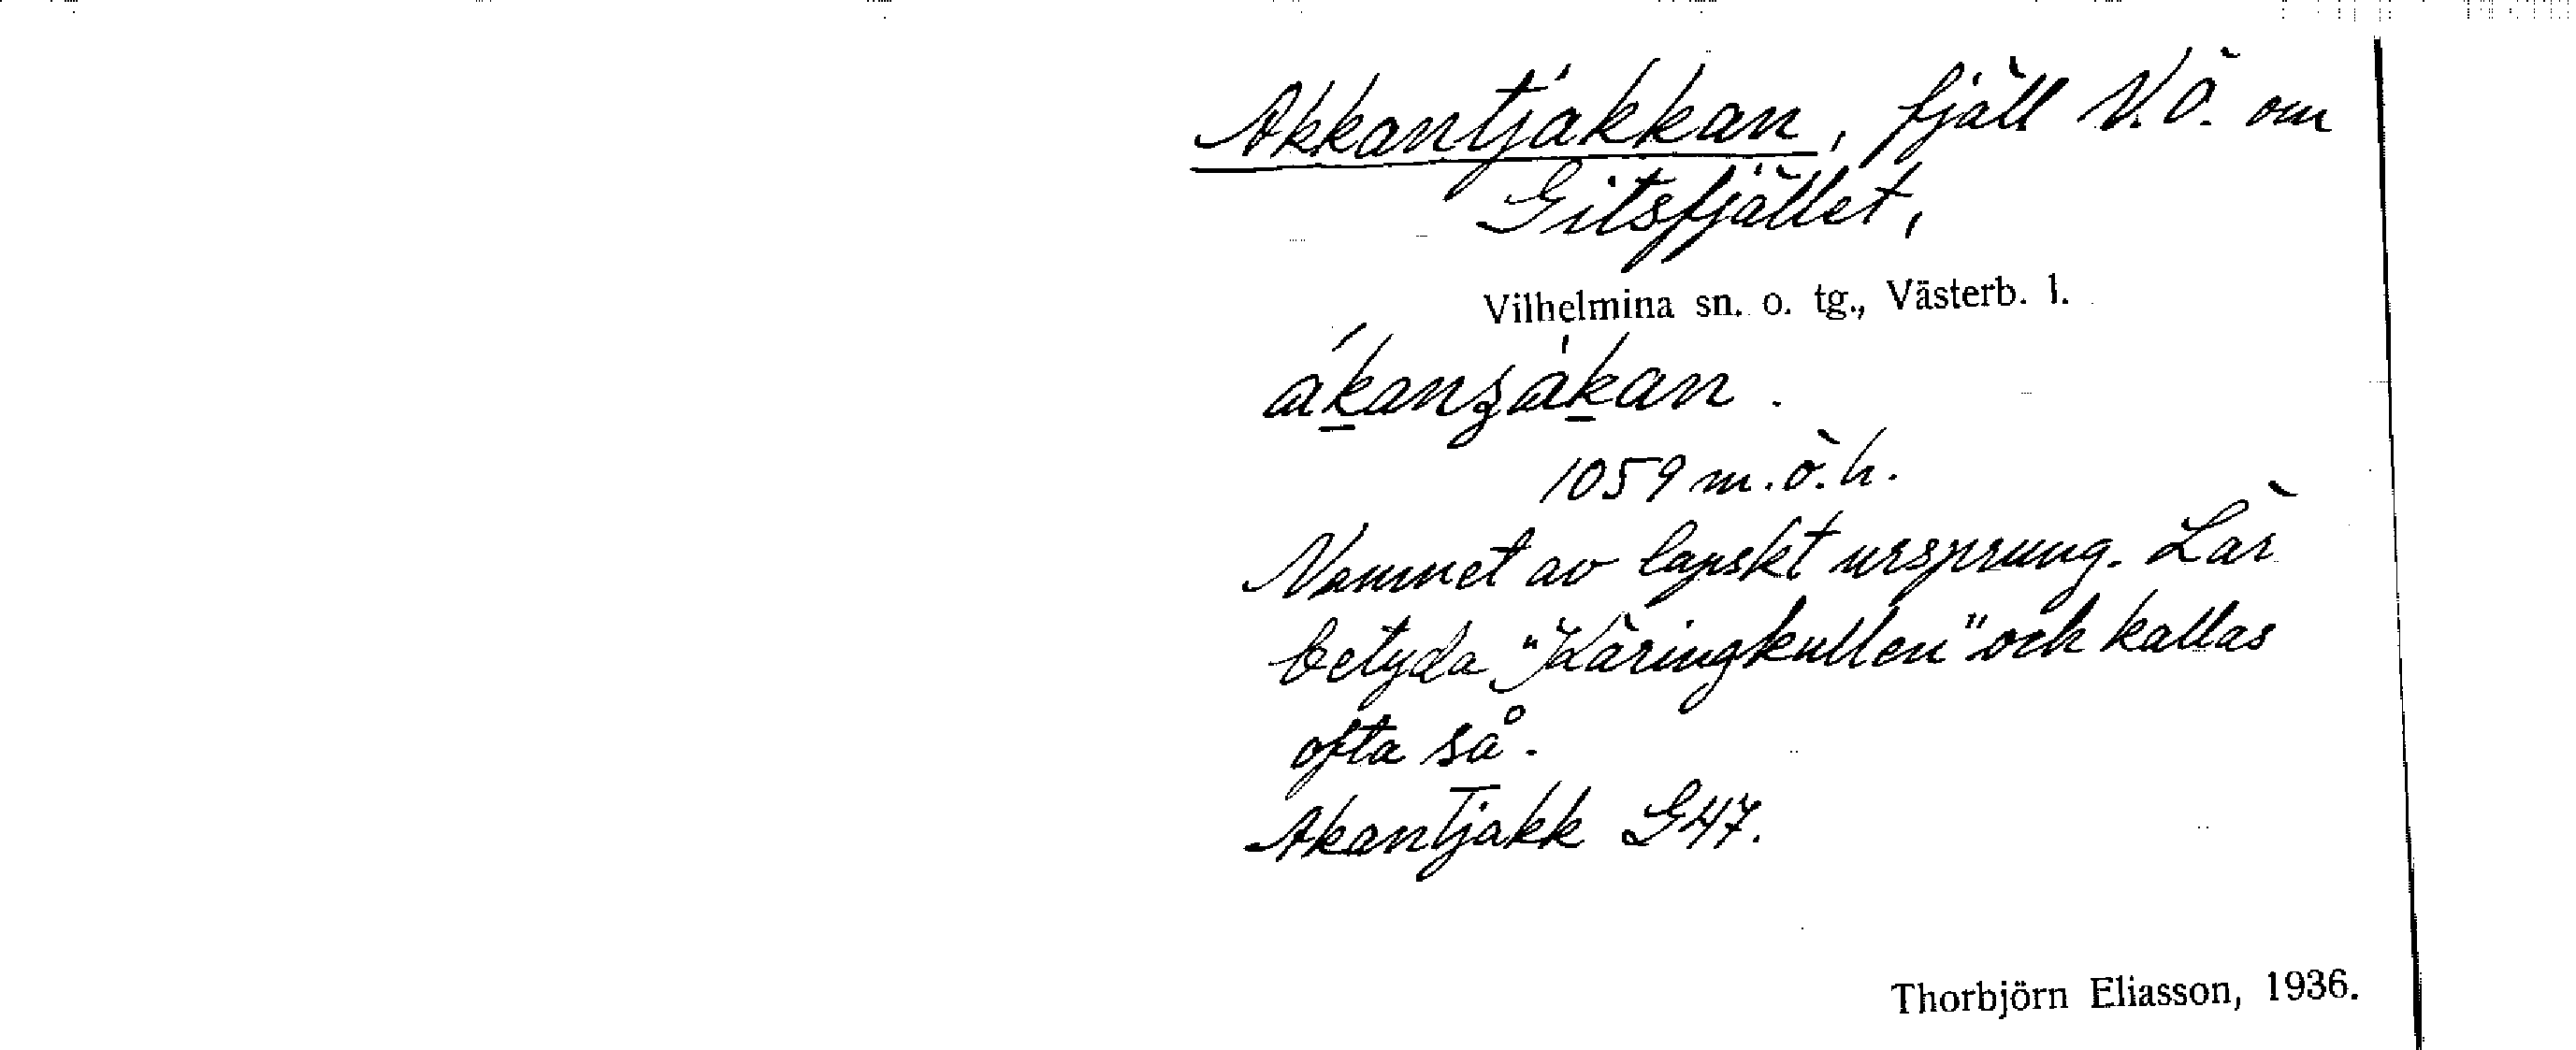 Akkantjakkan, fjäll V.Ö. om
Gitsfjället,
Vilhelmina sn. o. tg., Västerb. l.
1059 m.ö.h.
Namnet av lapskt ursprung. Lär
betyda "Käringkullen" och kallas
ofta så.
Akantjakk G47.
Thorbjörn Eliasson, 1936.